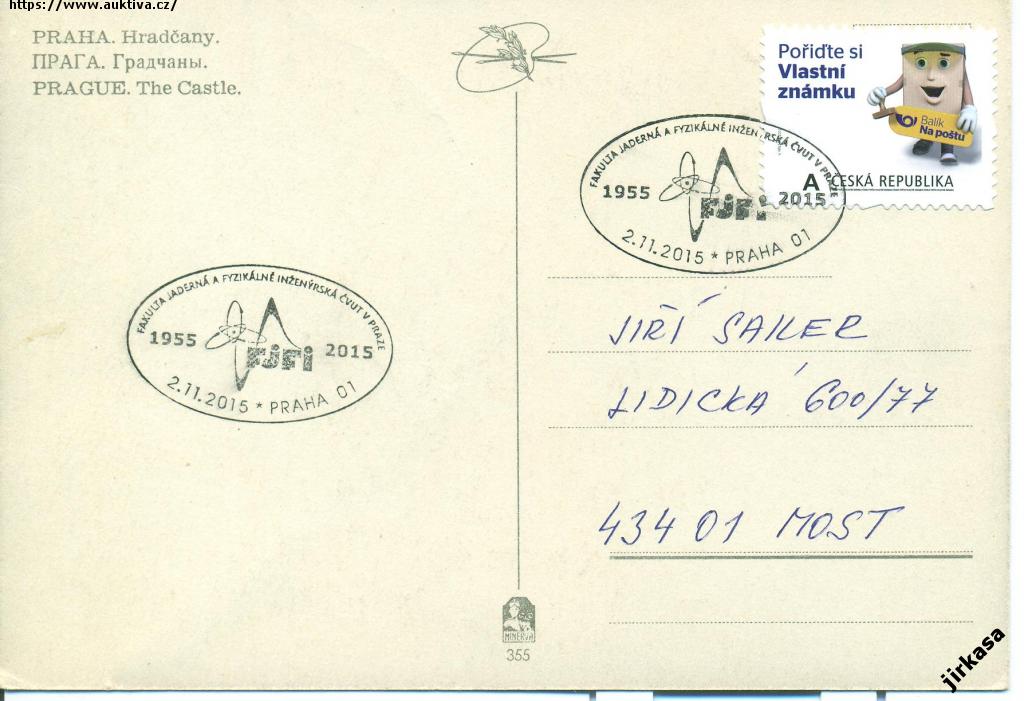 https://www.auktiva.cz/
PRAHA. Hradčany.
ПРАГА. Градчаны.
PRAGUE. The Castle.
Pořiďte si
Vlastní
známku
Balík
Na poštu
A ČESKÁ REPUBLIKA
FAKULTA JADERNÁ A FYZIKÁLNĚ INŽENÝRSKÁ ČVUT V PRAZE
1955 FJFI 2015
2.11.2015 * PRAHA 01
FAKULTA JADERNÁ A FYZIKÁLNĚ INŽENÝRSKÁ ČVUT V PRAZE
1955 FJFI 2015
2.11.2015 * PRAHA 01
JIŘÍ SAILER
LIDICKÁ 600/77
434 01 MOST
MINERVA
355
jirkasa